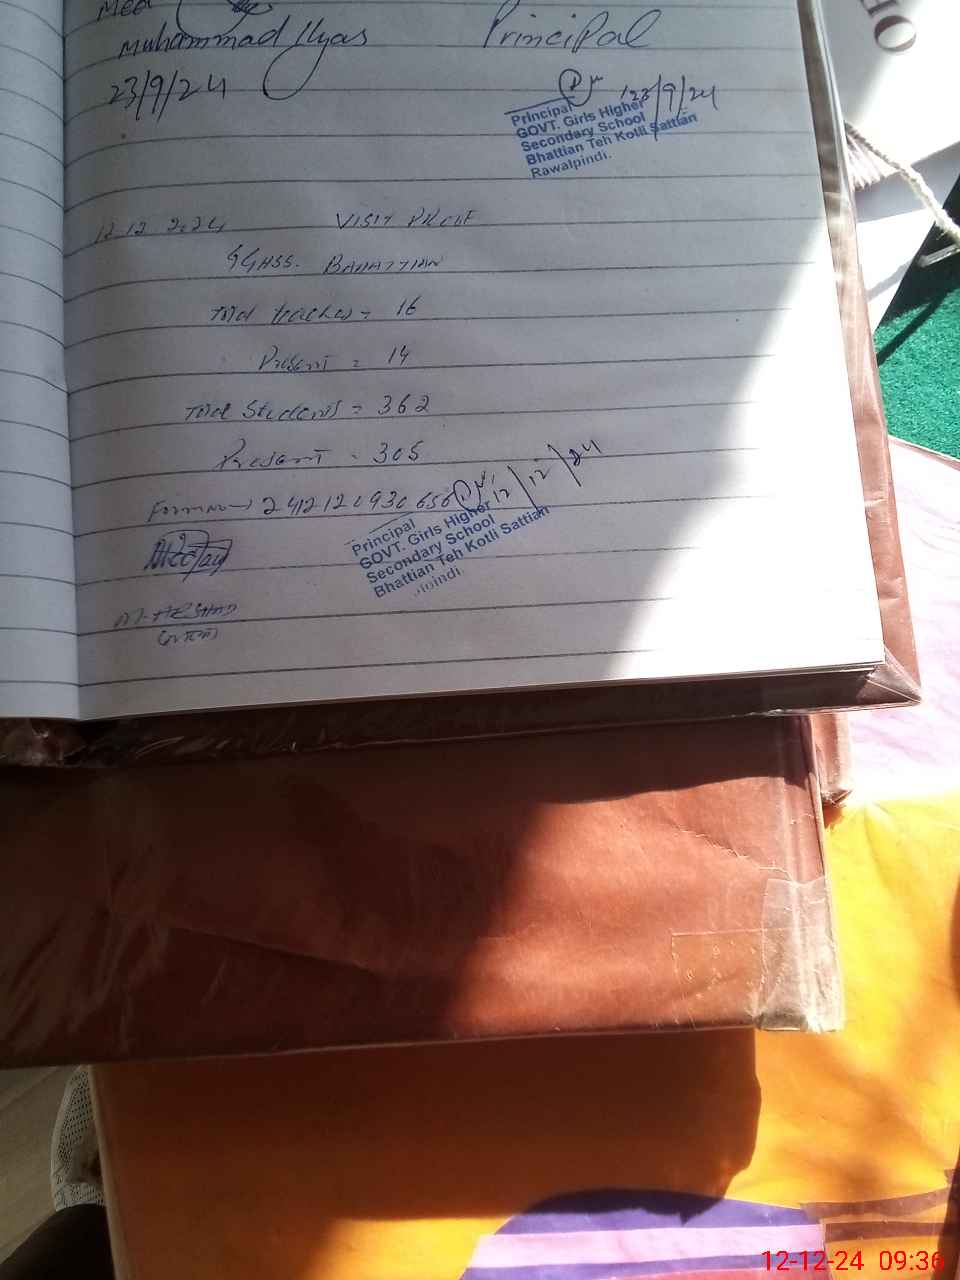 Muhammad Ilyas
Principal
23/9/24
23/9/24
Principal
GOVT. Girls Higher
Secondary School
Bhattian Teh Kotli Sattian
Rawalpindi.
12 12 2024 VISIT PROOF
GGHSS. BAHATTIAN
Total teachers = 16
Present = 14
Total Students = 362
Present = 305
12/12/24
Principal
GOVT. Girls Higher
Secondary School
Bhattian Teh Kotli Sattian
M. ARSHAD
HO
12-12-24 09:36